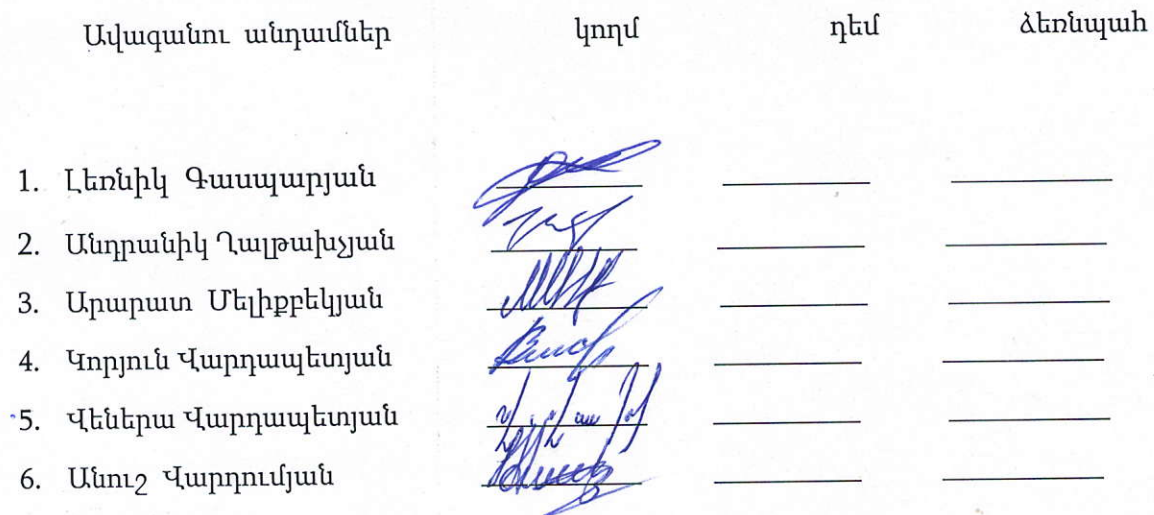 Ավագանու անդամներ կողմ դեմ ձեռնպահ
1. Լեռնիկ Գասպարյան
2. Անդրանիկ Ղալթախչյան
3. Արարատ Մելիքբեկյան
4. Կորյուն Վարդապետյան
5. Վեներա Վարդապետյան
6. Անուշ Վարդումյան